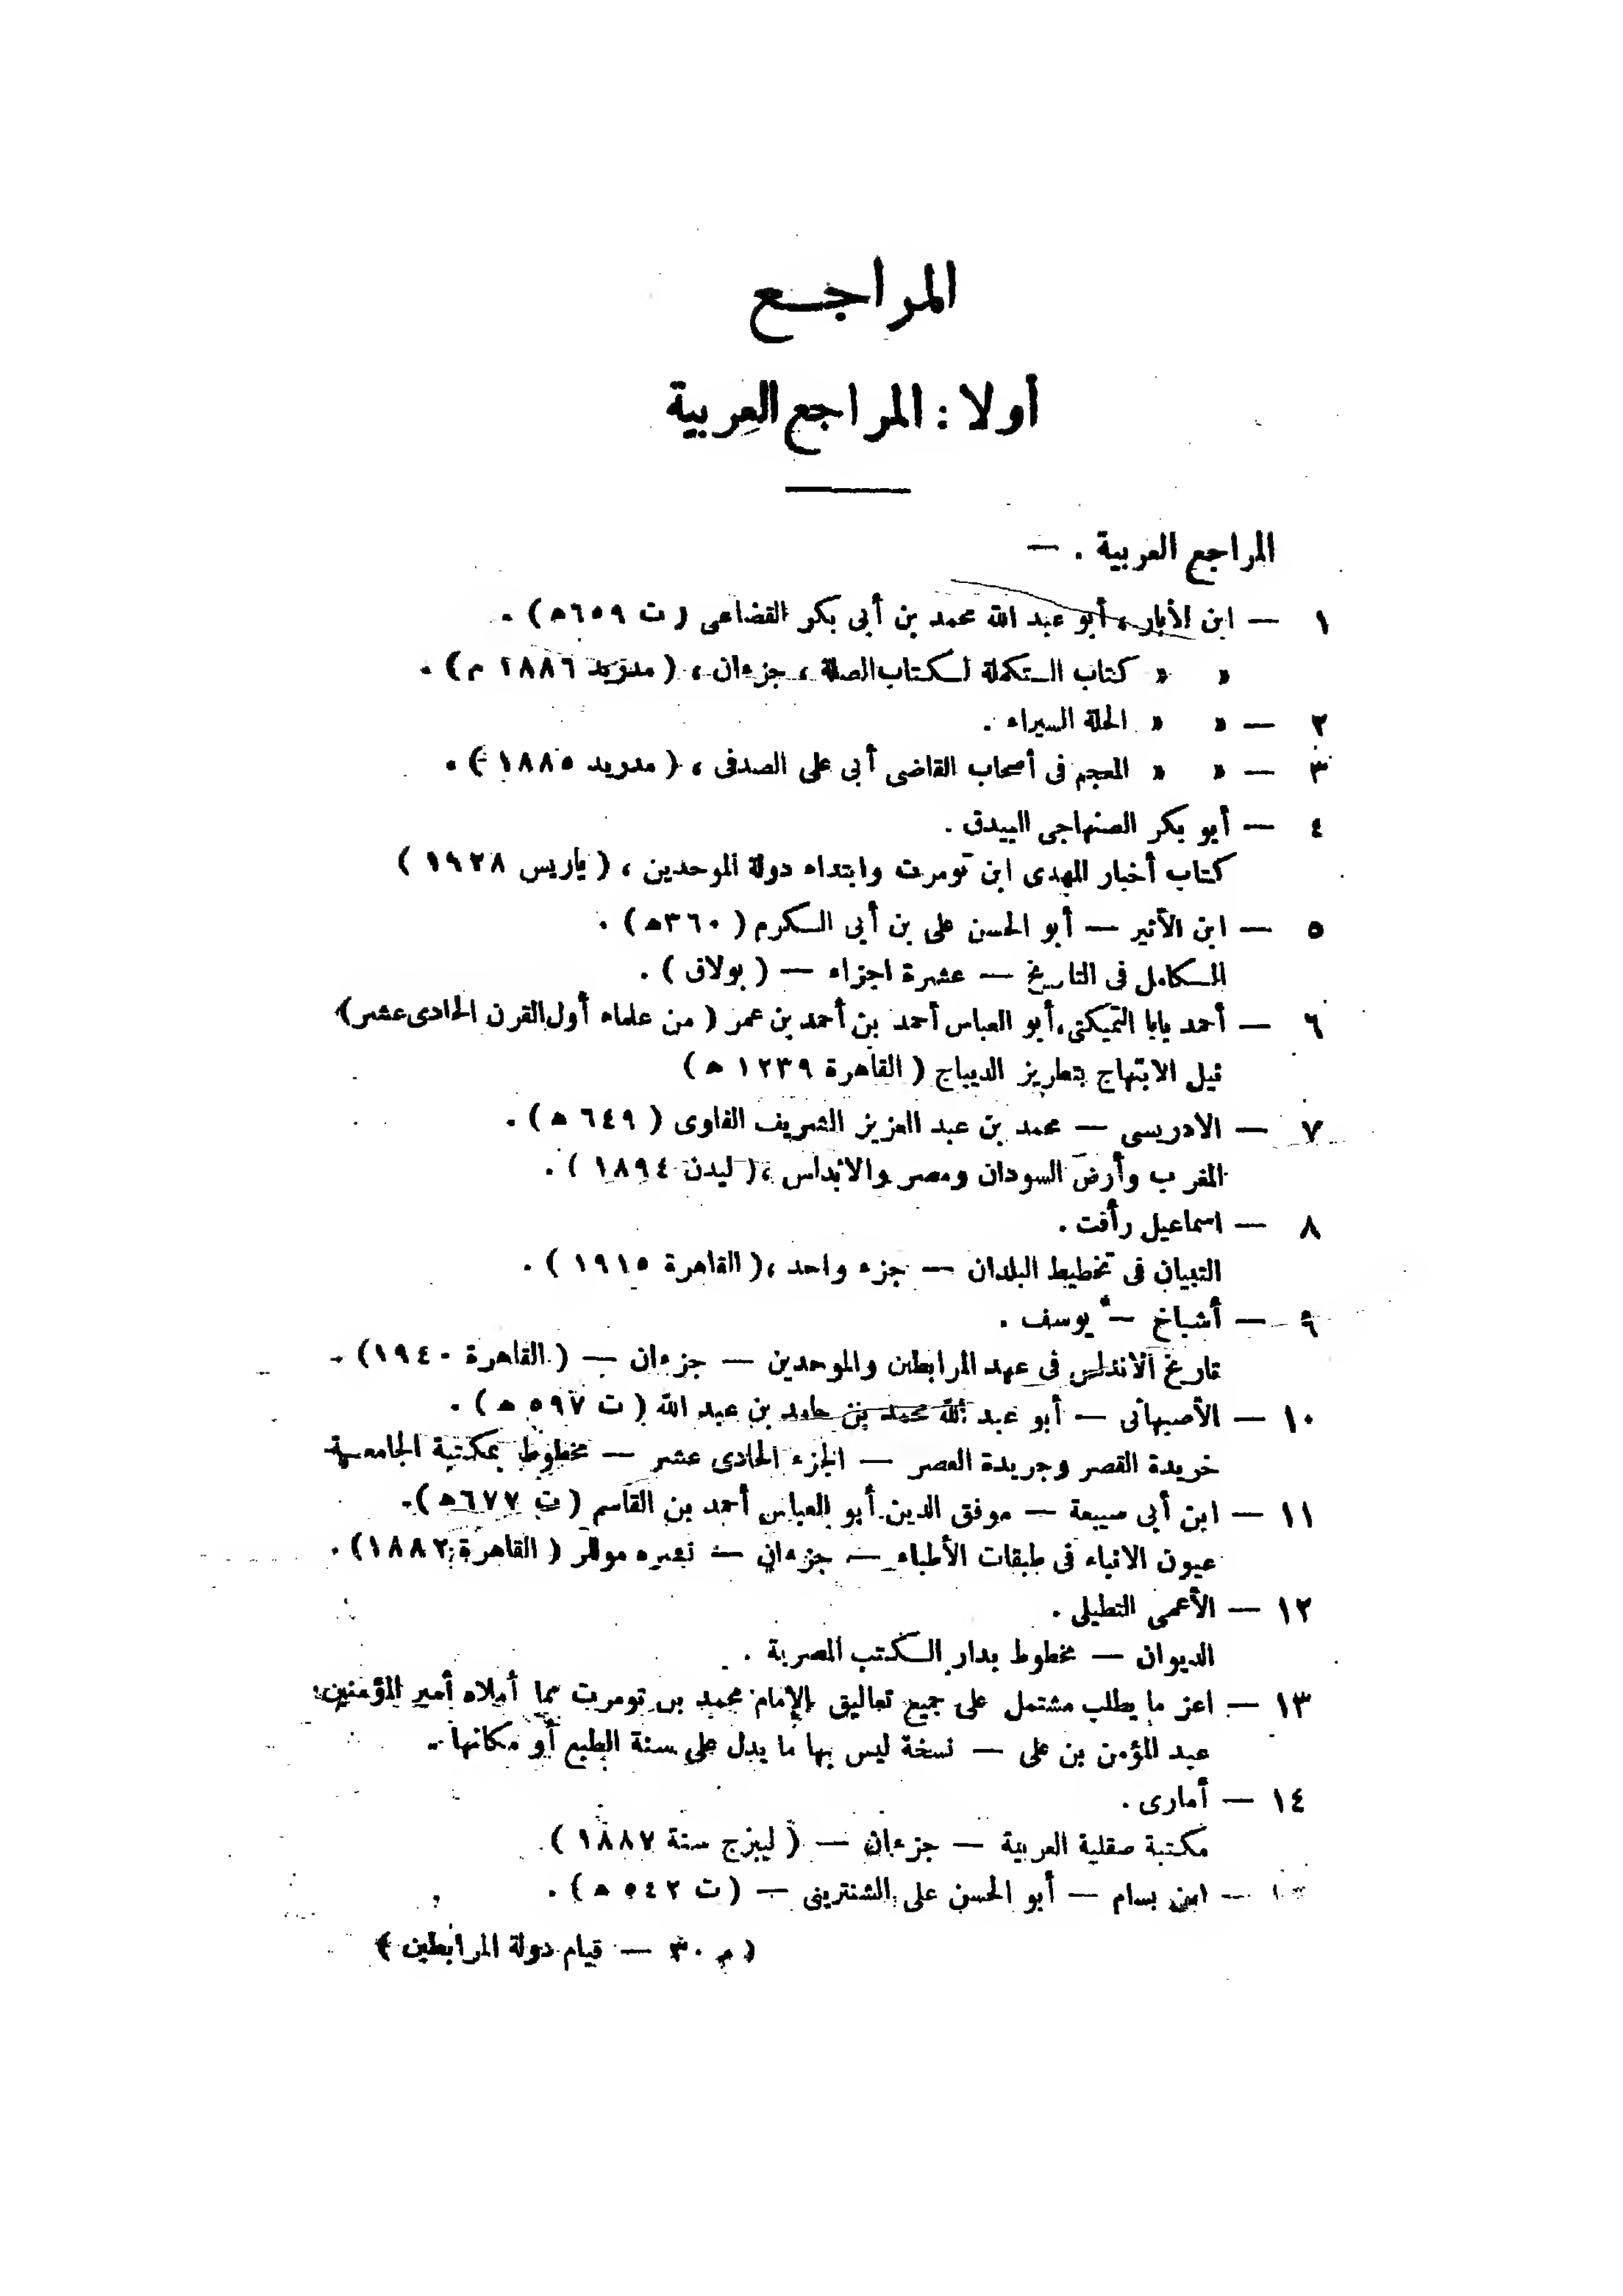 المراجـــع
أولا : المراجع العربية
المراجع العربية . —
١ — ابن الأبار ، أبو عبد الله محمد بن أبى بكر القضاعى ( ت ٦٥٩ھ ) .
» » كتاب التكملة لكتاب الصلة ، جزءان ، ( مدريد ١٨٨٦ م ) .
٢ — » » الحلة السيراء .
٣ — » » المعجم فى أصحاب القاضى أبى على الصدفى ، ( مدريد ١٨٨٥ ) .
٤ — أبو بكر الصنهاجى البيدق .
كتاب أخبار المهدى ابن تومرت وابتداء دولة الموحدين ، ( باريس ١٩٢٨ )
٥ — ابن الأثير — أبو الحسن على بن أبى الكرم ( ٣٦٠ھ ) .
الكامل فى التاريخ — عشرة اجزاء — ( بولاق ) .
٦ — أحمد بابا التمبكتى ، أبو العباس أحمد بن أحمد بن عمر ( من علماء أول القرن الحادى عشر )
نيل الابتهاج بتطريز الديباج ( القاهرة ١٢٣٩ ھ )
٧ — الادريسى — محمد بن عبد العزيز الشريف الفاوى ( ٦٤٩ ھ ) .
المغرب وأرض السودان ومصر والاندلس ، ( ليدن ١٨٩٤ ) .
٨ — اسماعيل رأفت .
التبيان فى تخطيط البلدان — جزء واحد ، ( القاهرة ١٩١٥ ) .
٩ — أشباخ — يوسف .
تاريخ الاندلس فى عهد المرابطين والموحدين — جزءان — ( القاهرة ١٩٤٠ ) .
١٠ — الأصبهانى — أبو عبد الله محمد بن حامد بن عبد الله ( ت ٥٩٧ ھ ) .
خريدة القصر وجريدة العصر — الجزء الحادى عشر — مخطوط بمكتبة الجامعة
١١ — ابن أبى صيبعة — موفق الدين أبو العباس أحمد بن القاسم ( ت ٦٧٧ھ ) .
عيون الانباء فى طبقات الأطباء — جزءان — نشره موللر ( القاهرة ١٨٨٢ ) .
١٢ — الأعمى التطيلى .
الديوان — مخطوط بدار الكتب المصرية .
١٣ — اعز ما يطلب مشتمل على جميع تعاليق الإمام محمد بن تومرت مما أملاه أمير المؤمنين
عبد المؤمن بن على — نسخة ليس بها ما يدل على سنة الطبع أو مكانها .
١٤ — أمارى .
مكتبة صقلية العربية — جزءان — ( ليبزج سنة ١٨٨٧ )
— ابن بسام — أبو الحسن على الشنترينى — ( ت ٥٤٢ ھ ) .
( م ٣٠ — قيام دولة المرابطين )